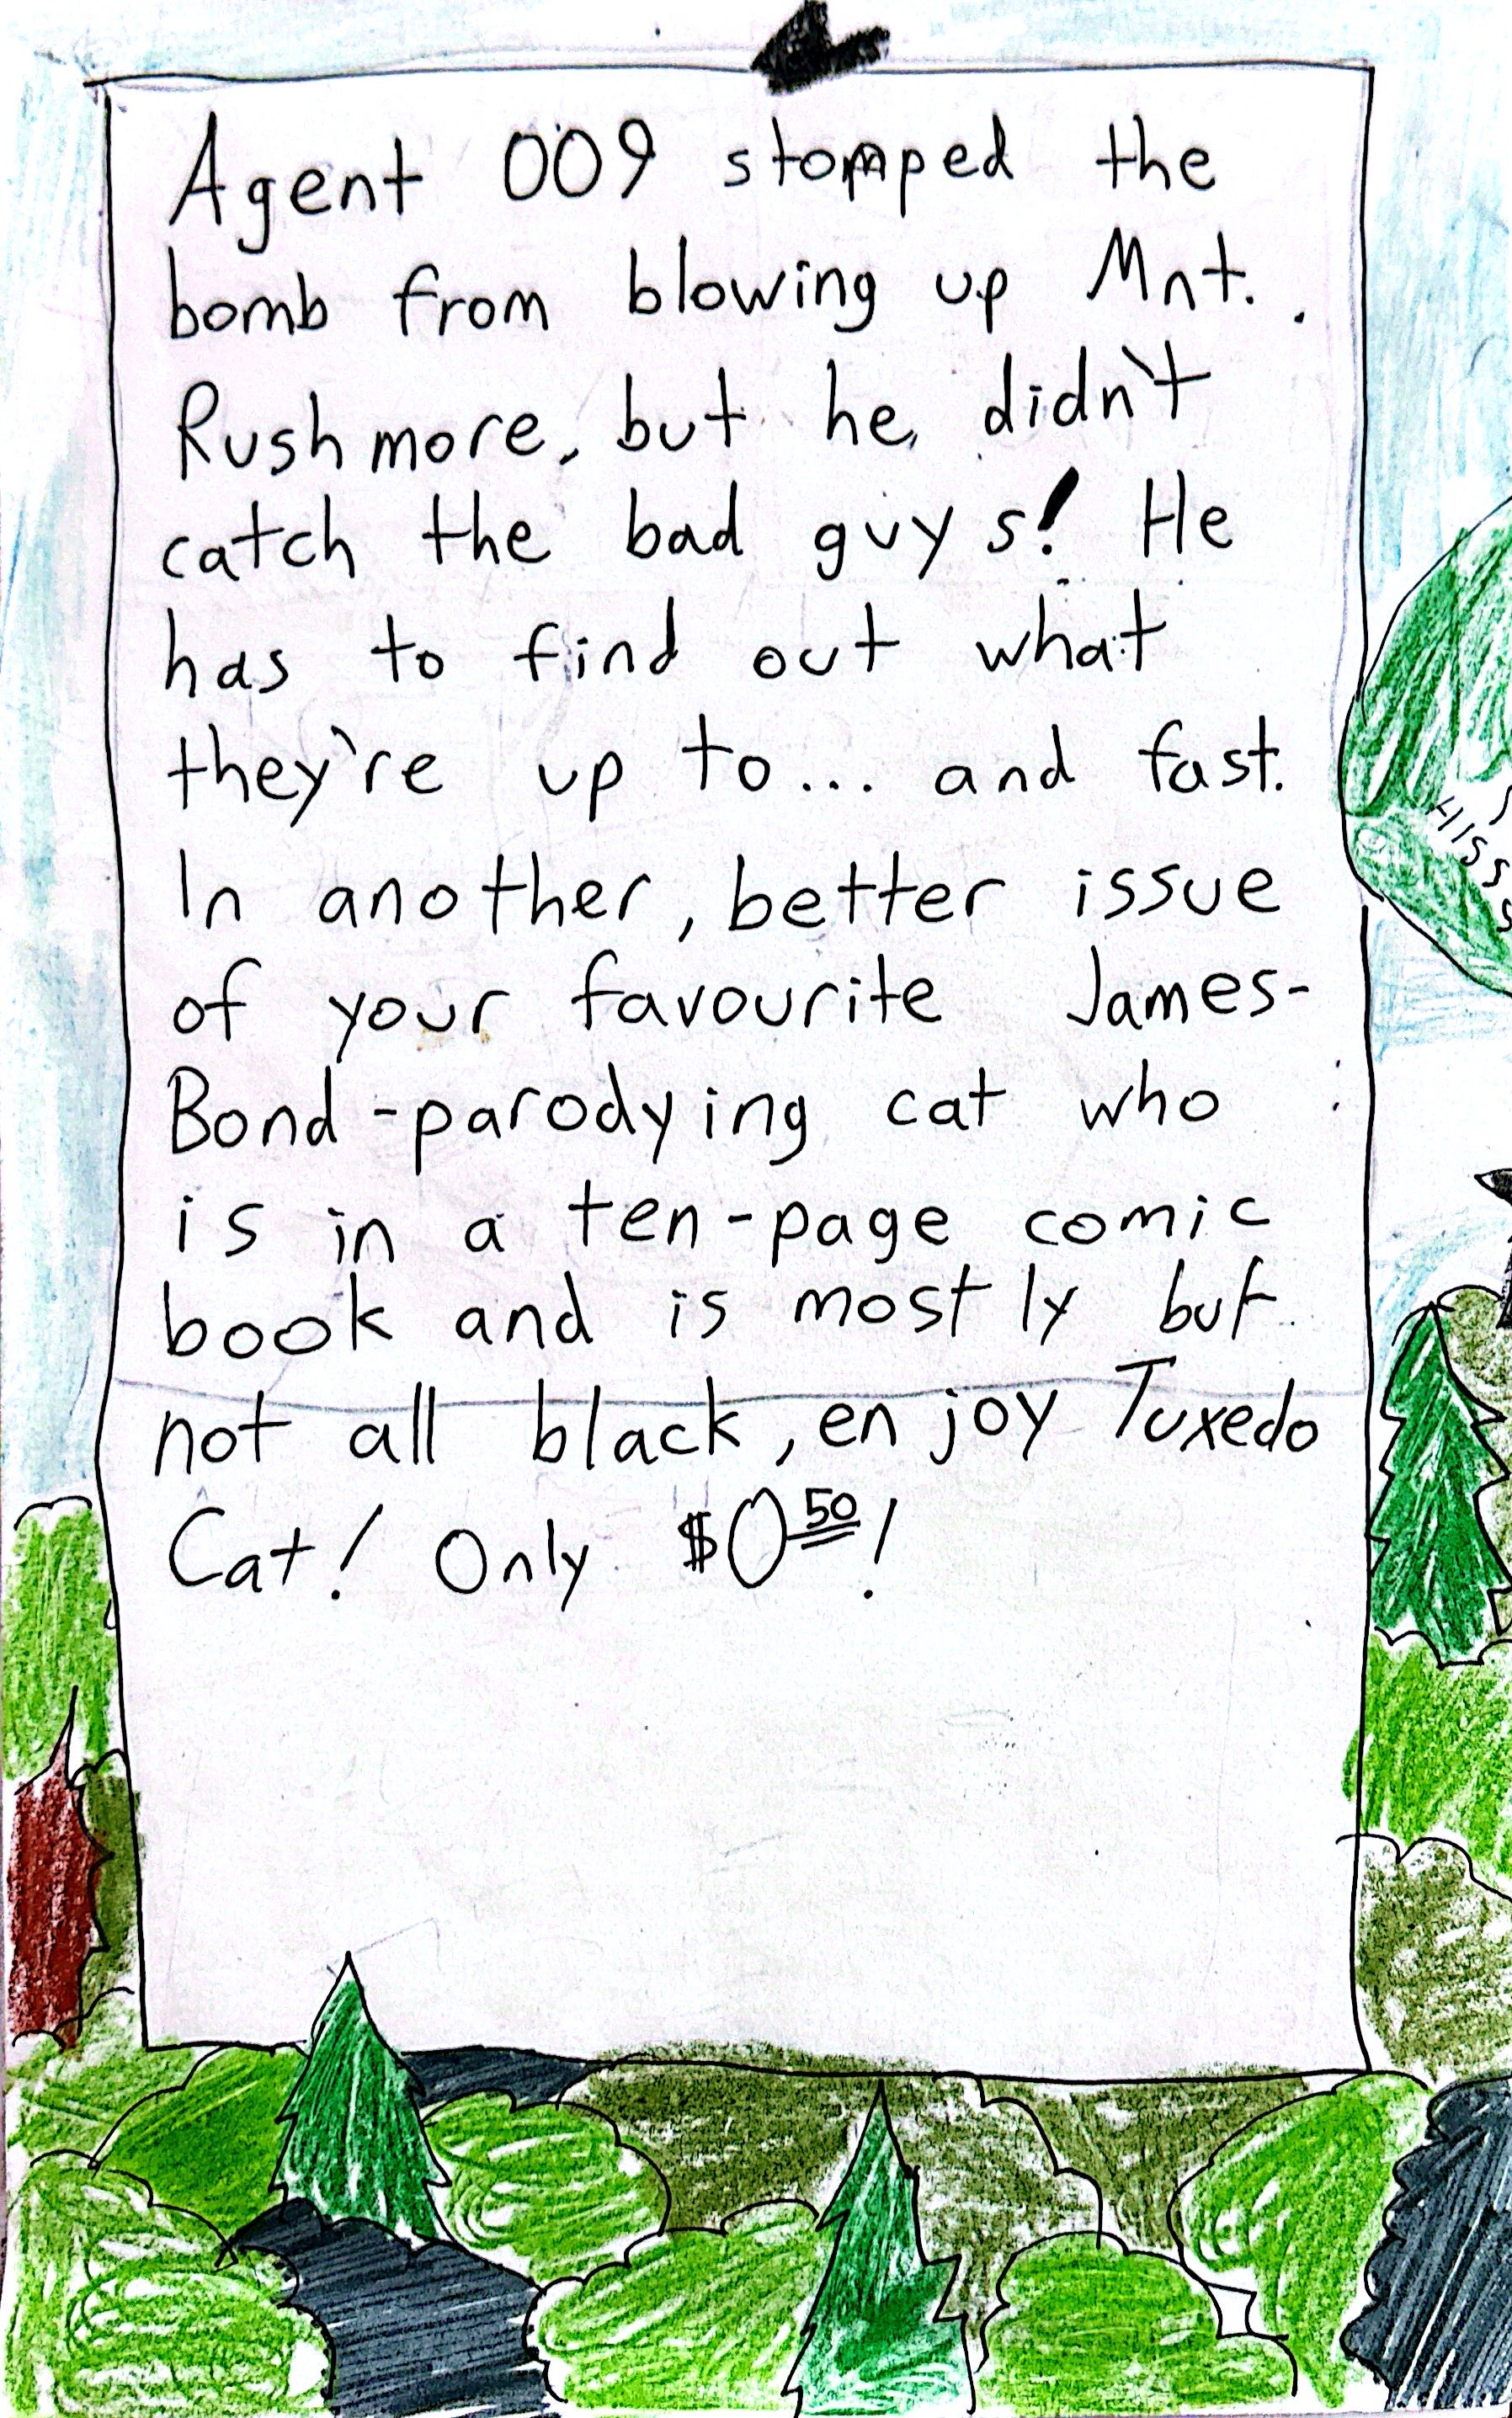 Agent 009 stomped the
bomb from blowing up Mnt.
Rushmore, but he didn't
catch the bad guys! He
has to find out what
they're up to... and fast.
In another, better issue
of your favourite James-
Bond-parodying cat who
is in a ten-page comic
book and is mostly but
not all black, enjoy Tuxedo
Cat! Only $0.50!
HISSSS